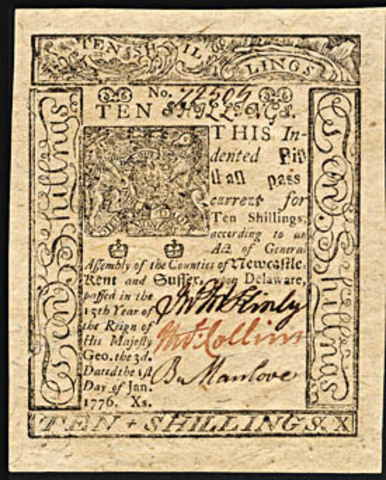 TEN SHIL
LINGS
No. 72505
TEN SHILLINGS.
THIS In-
dented Bill
shall pass
current for
Ten Shillings,
according to an
Act of General
Assembly of the Counties of Newcastle,
Kent and Sussex, upon Delaware,
passed in the
15th Year of
the Reign of
His Majesty
Geo. the 3d.
Dated the 1st
Day of Jan.
1776. Xs.
Jno McKinly
Thos. Collins
Bn Manlove
Ten Shillings
Ten Shillings
TEN + SHILLINGS. X